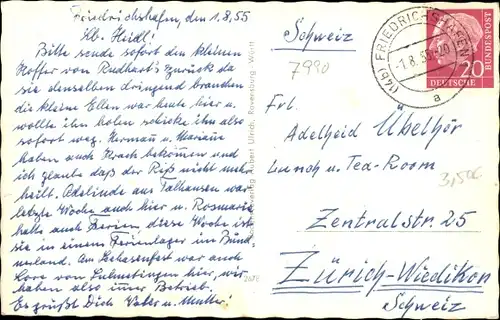 Friedrichshafen, den 1.8.55
Lb. Heidl!
Bitte sende sofort den kleinen
Koffer von Rudhart's zurück da
sie denselben dringend brauchen
die kleine Ellen war heute hier u.
wollte ihn holen schicke ihn also
sofort weg. Hermann u. Mariane
haben auch Krach bekommen und
ich glaube daß der Riß nicht mehr
heilt. Adelinde aus Talhausen war
letzte Woche auch hier u. Rosmarie
hatte auch Ferien, diese Woche ist
sie in einem Ferienlager im Bünd-
nerland. Am Hohesenfest war auch
Lore von hier, wir
haben also immer Betrieb.
Es grüßt Dich Vater u. Mutter!
Robert Ullrich, Ravensburg - Württ
2076
Schweiz
7990
(14b) FRIEDRICHSHAFEN
-1.8.55
a
DEUTSCHE
BUNDESPOST
20
Frl.
Adelheid Übelhör
Lunch u. Tea-Room
3,50€
Zentralstr. 25
Zürich-Wiedikon
Schweiz